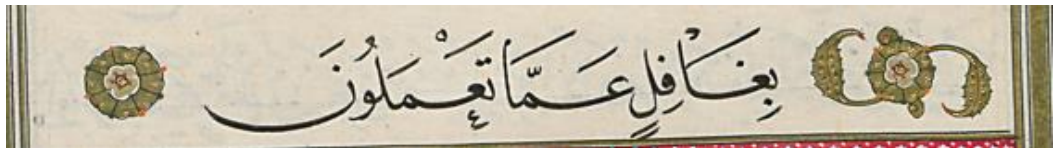 بِغَافِلٍ عَمَّا تَعْمَلُونَ